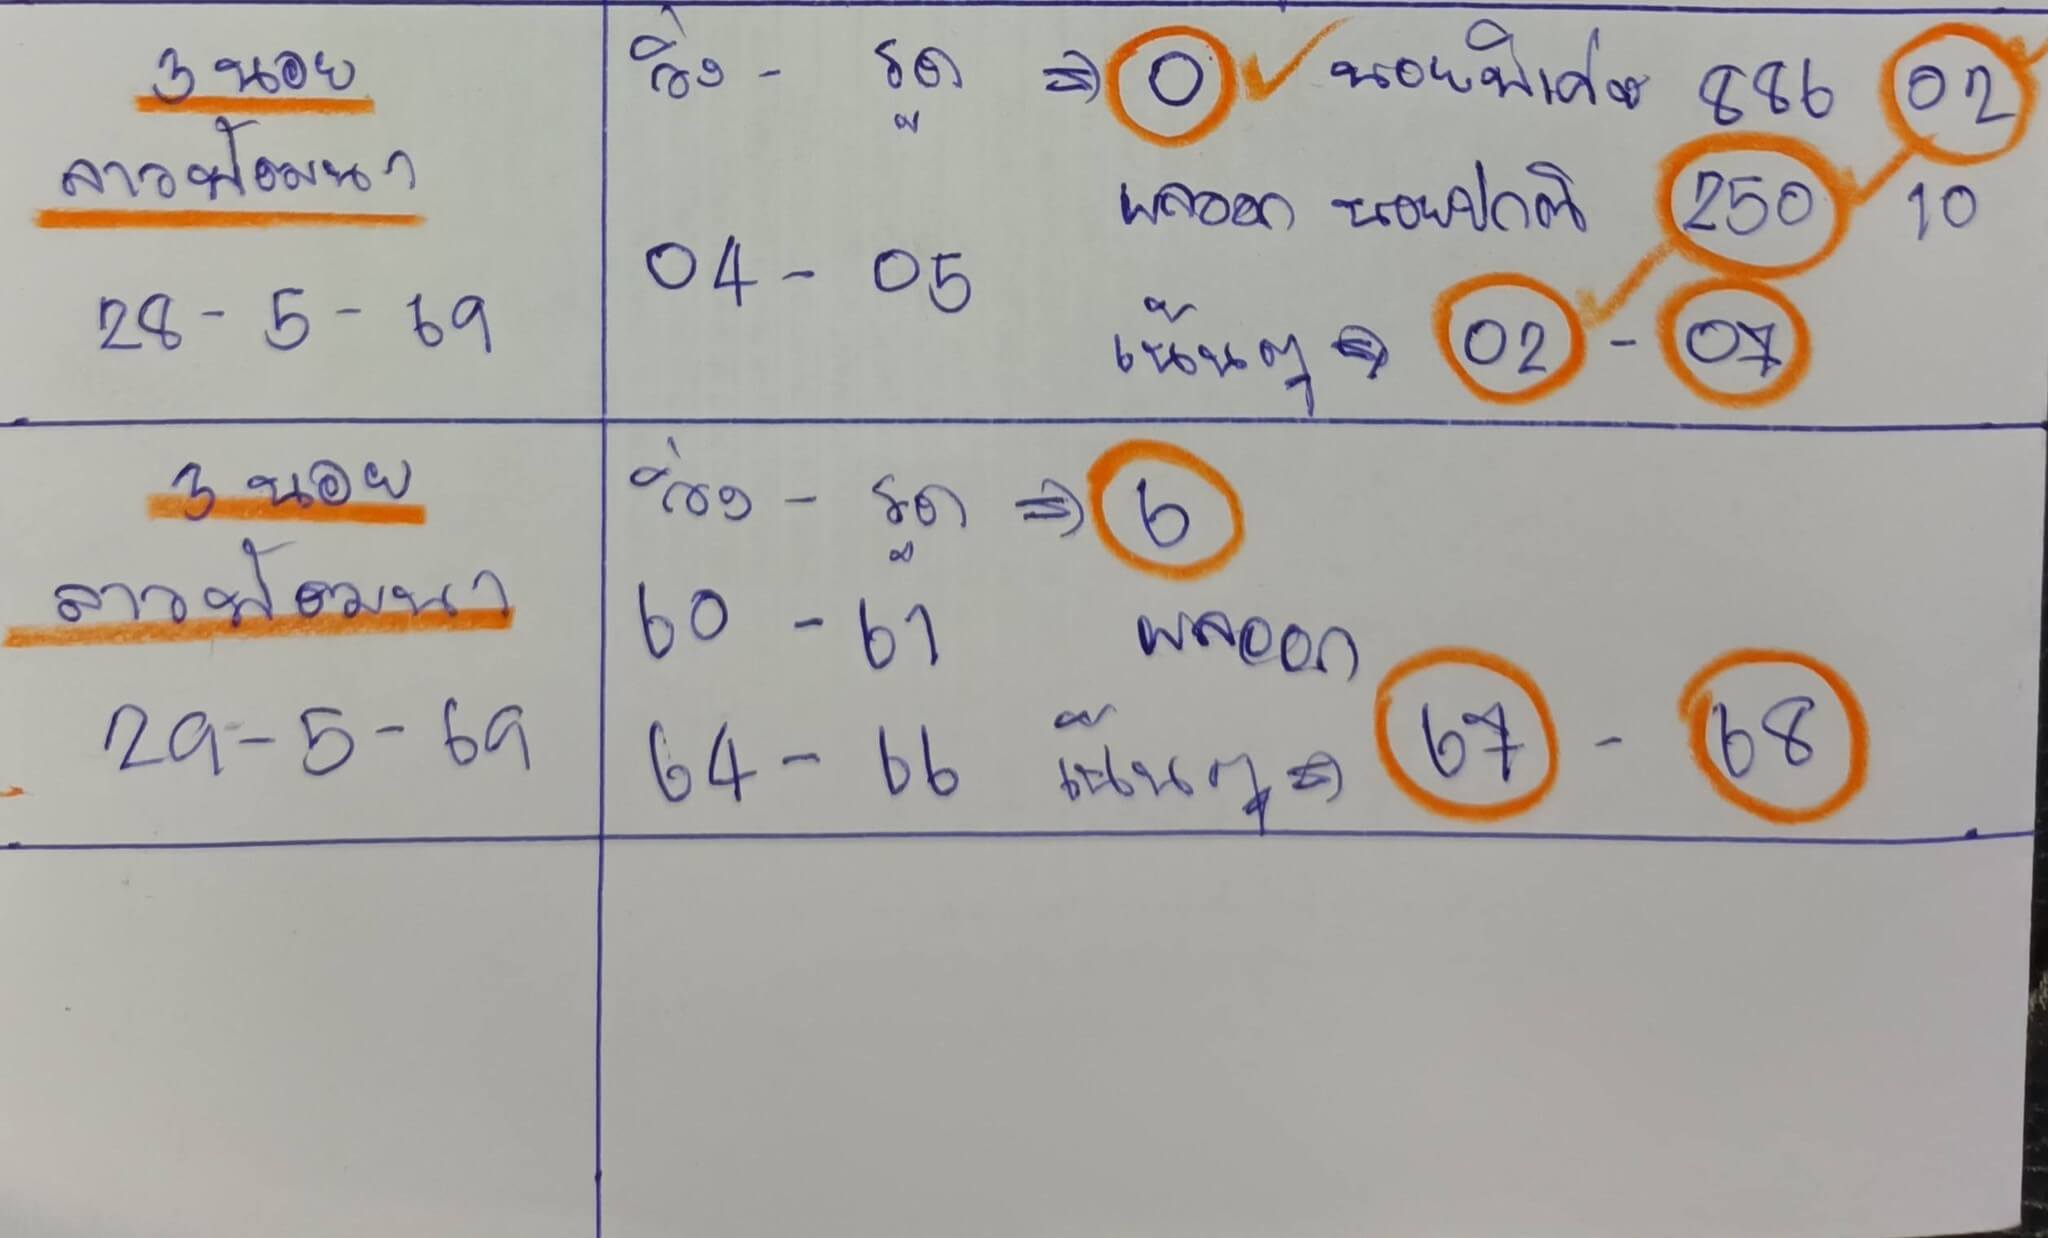 3 นอย
ลาวพัฒนา
28 - 5 - 69
วิ่ง - รูด ⇒ 0 ✓ นอยพิเศษ 886 02
ผลออก นอยปกติ 250 10
04 - 05
เน้นๆ ⇒ 02 - 07
3 นอย
ลาวพัฒนา
29 - 5 - 69
วิ่ง - รูด ⇒ 6
60 - 61 ผลออก
64 - 66 เน้นๆ ⇒ 67 - 68